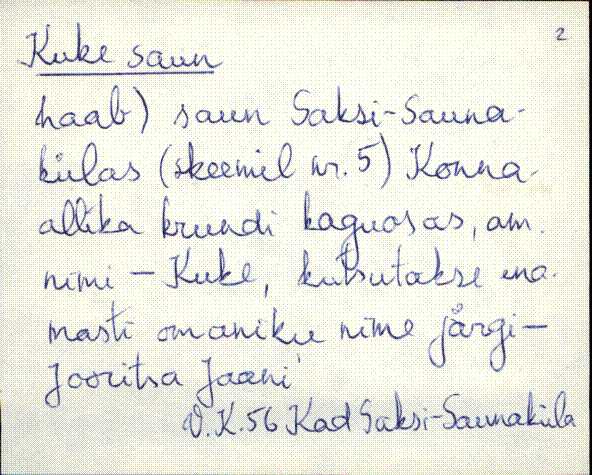 2
Kuke saun
haab) saun Saksi-Sauna-
külas (skeemil nr. 5) Konna-
allika krundi kaguosas, am.
nimi – Kuke, kutsutakse ena-
masti omaniku nime järgi –
Jooritsa Jaani
V.K. 56 Kad Saksi-Saunaküla